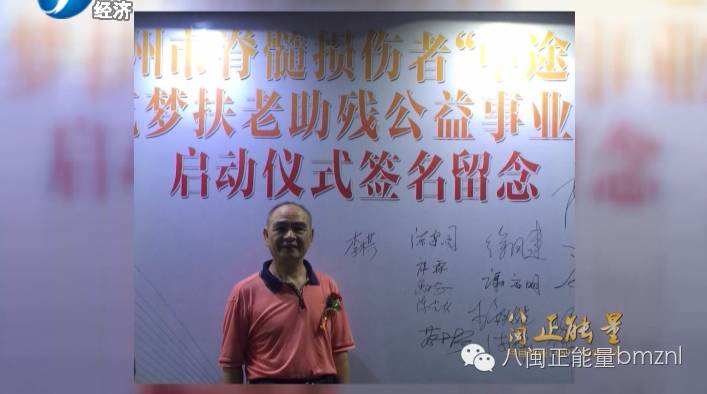 经济
州市脊髓损伤者“中途
梦扶老助残公益事业
启动仪式签名留念
八闽正能量
八闽正能量bmznl